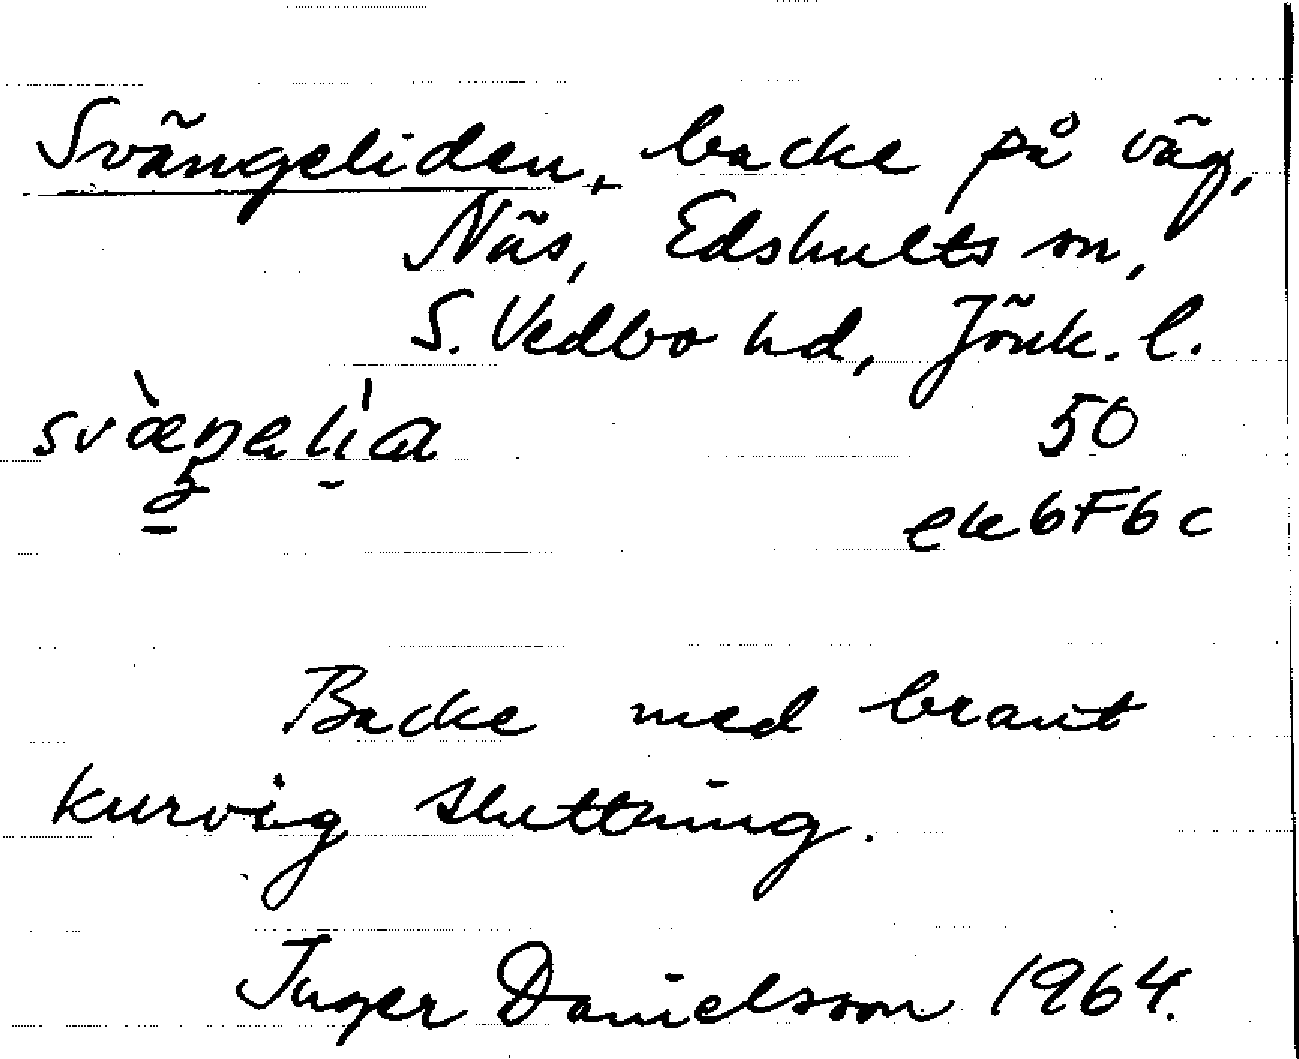 Svängeliden, backe på väg,
Näs, Edshults sn,
S. Vedbo hd, Jönk. l.
50
ek 6F6c
Backe med brant
kurvig sluttning.
Inger Danielsson 1964.